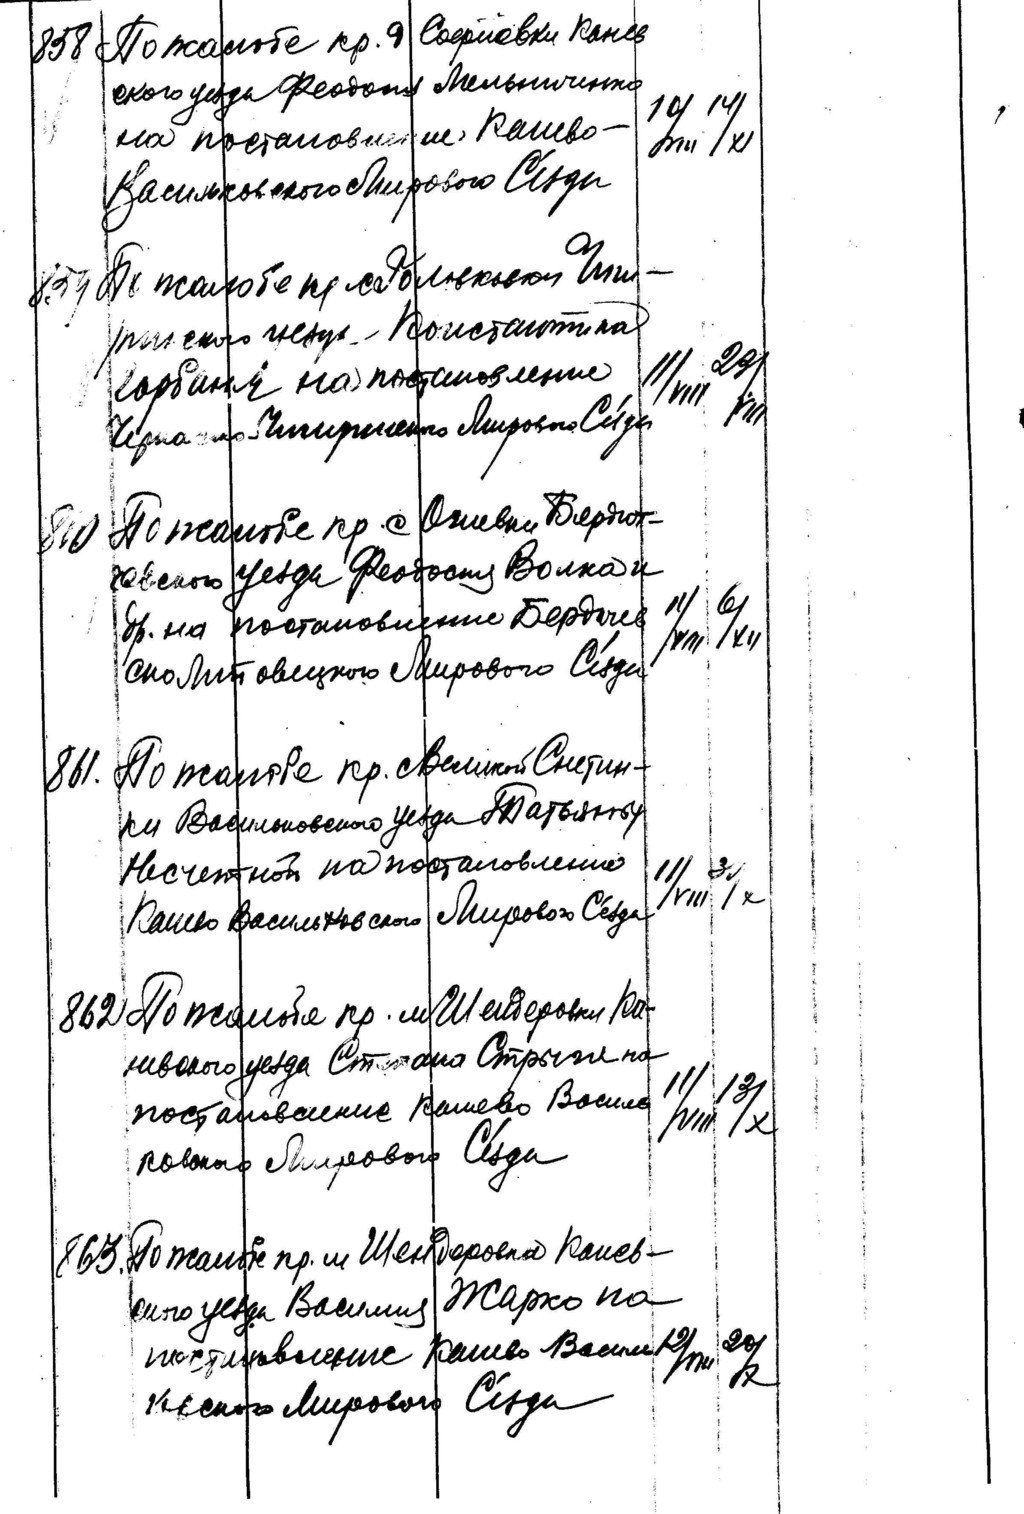 858 По жалобе кр. д Софиевки Канев
ского уезда Феодосия Мельниченко
на постановление Канево-
Васильковского Мирового Сьезда
10/VIII 14/XI
859 По жалобе кр с Чиги-
ринского уезда Константина
Горбаня на постановление
Черкасско-Чигиринского Мирового Сьезда
11/VIII 29/VIII
860 По жалобе кр. с Огиевки Бердит-
чевского уезда Феодосия Волка и
др. на постановление Бердичев
ско Липовецкого Мирового Сьезда
11/VIII 6/XII
861. По жалобе кр. с Великой Снетин-
ки Васильковского уезда Татьяны
Несчетной на постановление
Канево Васильковского Мирового Сьезда
11/VIII /X
862 По жалобе кр. м Шендеровки Ка-
невского уезда Степана на
постановление Канево Василь
ковского Мирового Сьезда
11/VIII 13/X
863. По жалобе кр. м Шендеровки Канев-
ского уезда Василия Жарко на
постановление Канево Василь
ковского Мирового Сьезда
12/VIII 20/X